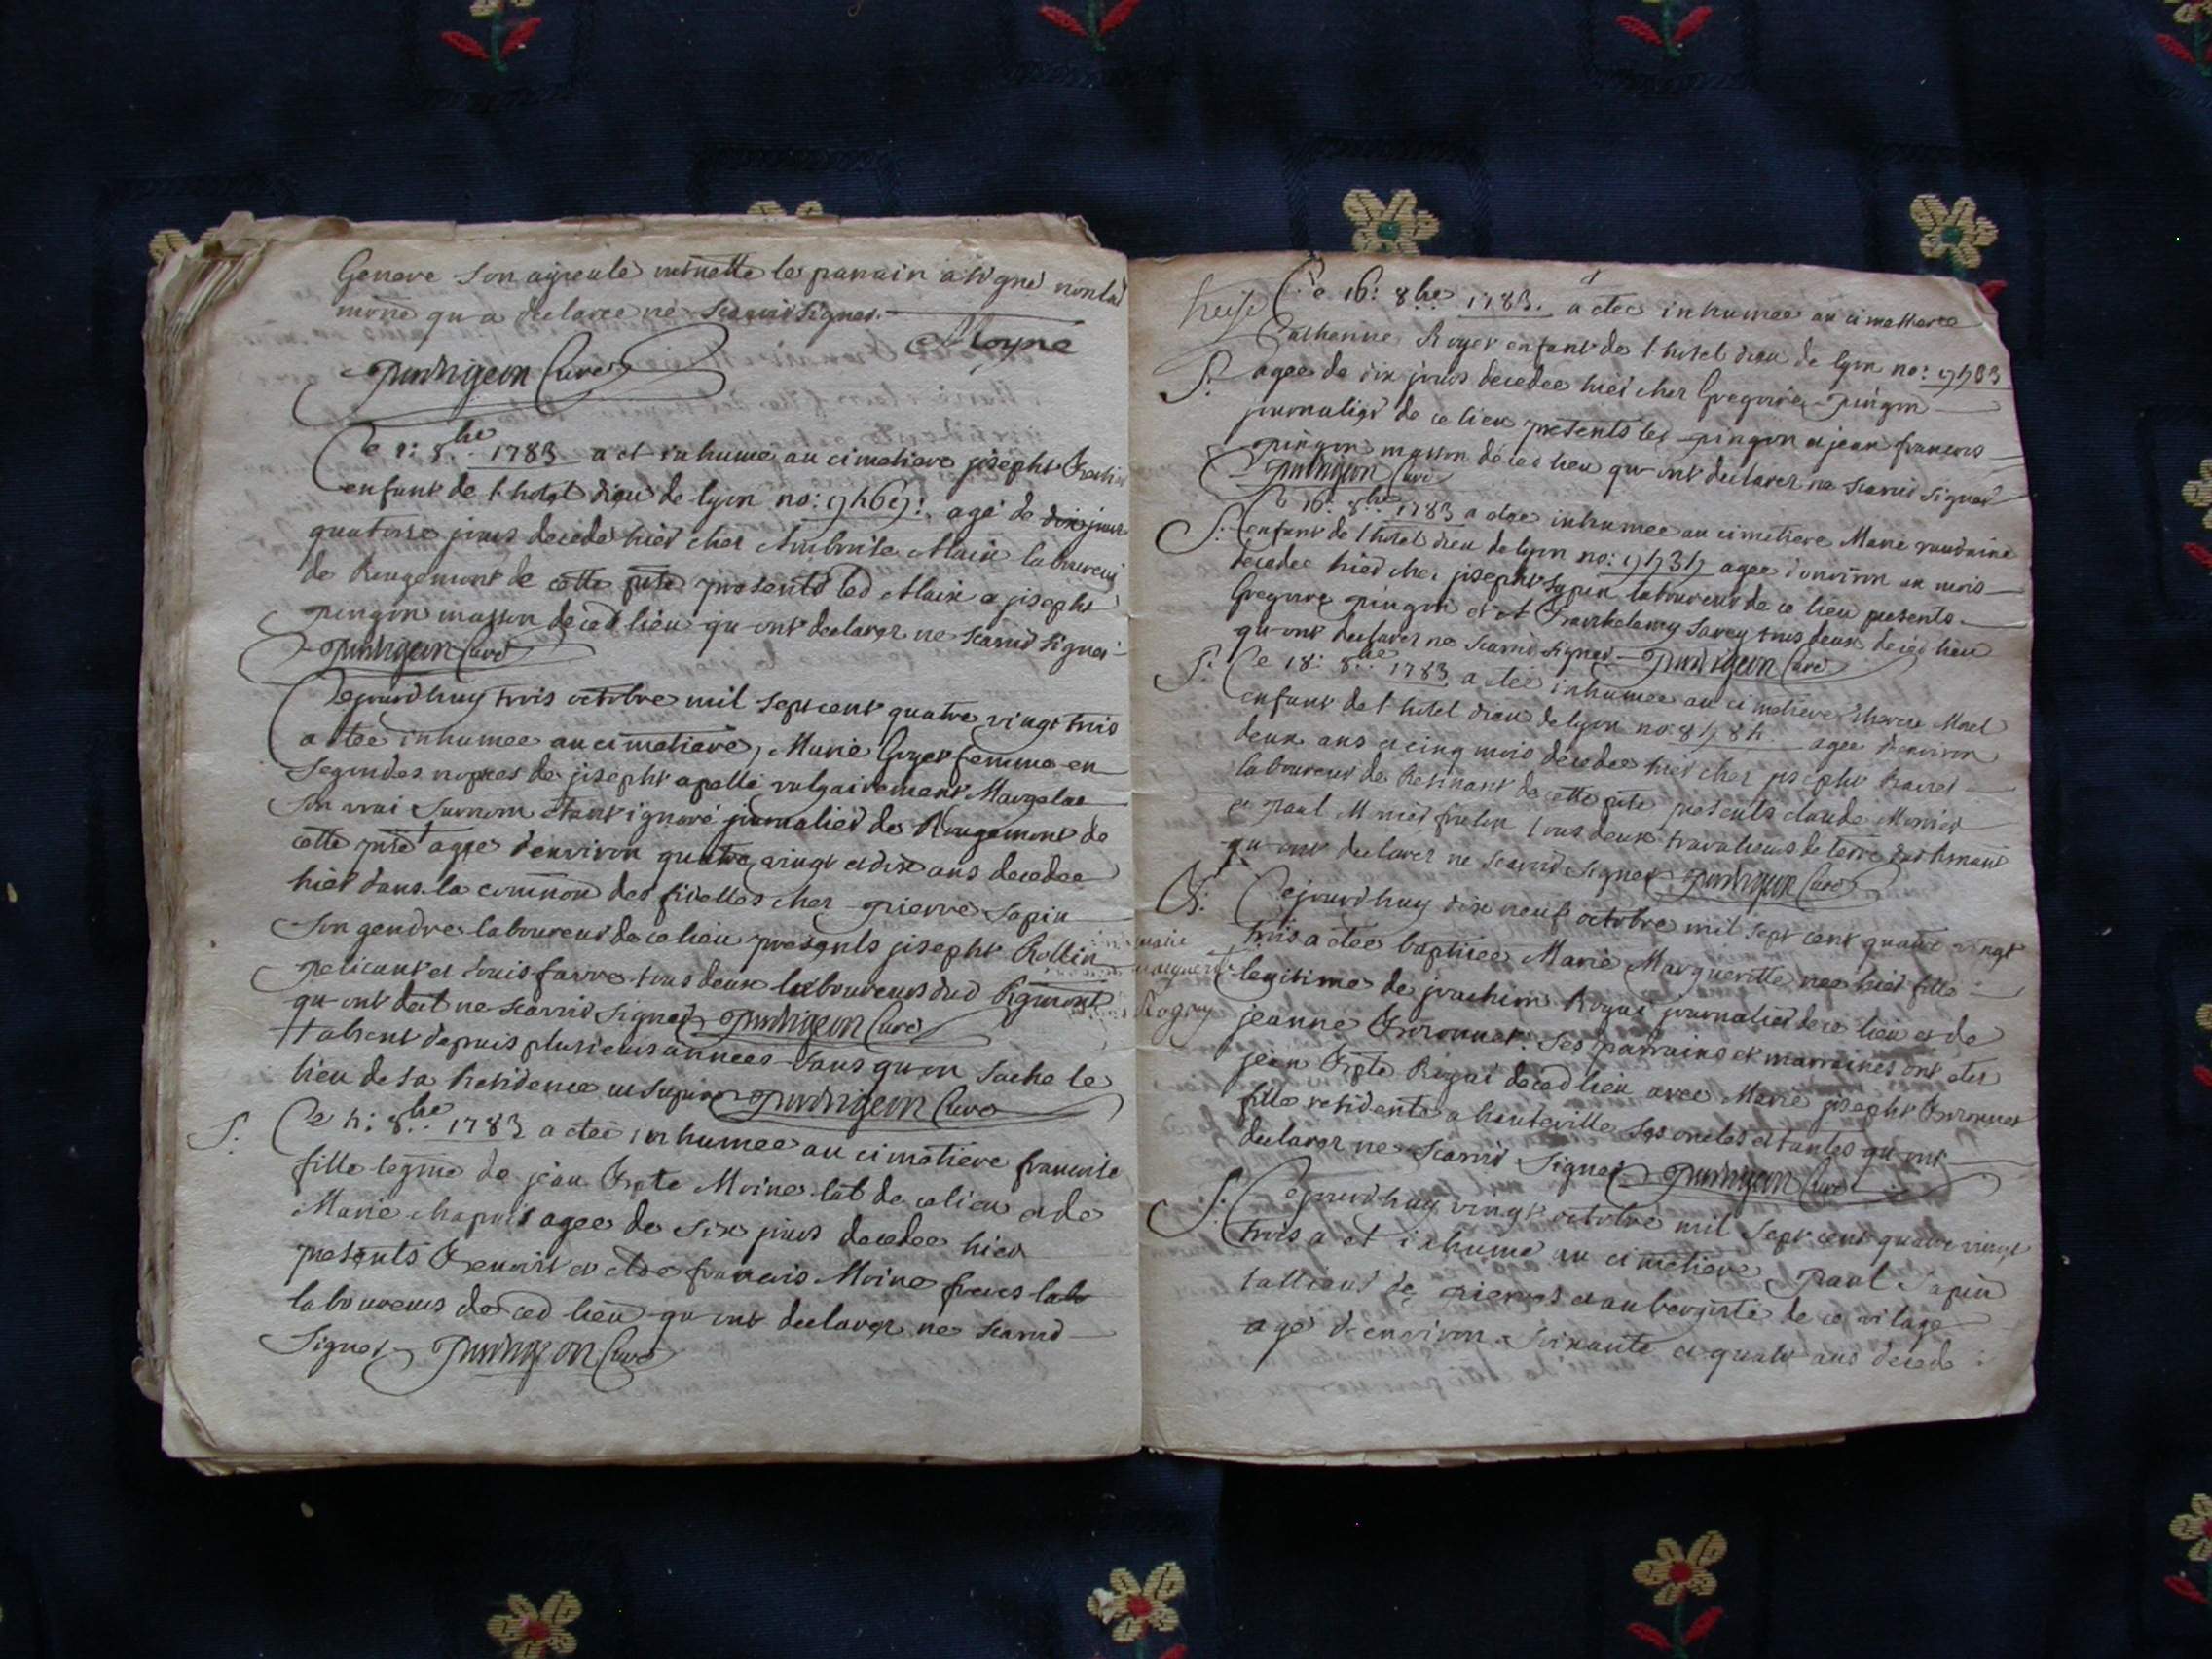 Geneve son ayeule le parrain a signé non la
mone qu a declaree ne scavoir signer.
Moyne
Curé
Ce 8bre 1783 a et inhume au cimetiere joseph
enfant de l hotel dieu de lyon no: agé de dix jours
quatorse jours decedé hier chez Ambroise Maix laboureur
de Rougemont de cette psse presents led Maix et joseph
pingon masson de ced lieu qu ont declarer ne scavoir signer
Curé
Cejourdhuy trois octobre mil sept cent quatre vingt trois
a etee inhumee au cimetiere, Marie Goyet femme en
segondes nopces de joseph apellé vulgairement Margelac
son vrai surnom etant ignoré jornalier de Rougemont de
cette psse agee d'environ quatre vingt et dix ans decedee
hier dans la comnon des fidelles chez pierre Sapin
son gendre laboureur de ce lieu presents joseph Rollin
pelicant et Louis favre tous deux laboureurs dud
qu ont declt ne scavoir signer Curé
† absent depuis plusieurs années sans qu on sache le
lieu de sa Residence ut supra Curé
S. Ce 4: 8bre 1783 a etee inhumee au cimetiere francoise
fille legme de jean Bpte Moine lab de ce lieu et de
Marie chapuis agee de six jours decedee hier
presents Benoist et francois Moine freres lab
laboureurs de ced lieu qu ont declarer ne scavoir
signer Curé
Ce 16: 8bre 1783. a etee inhumee au cimettiere
Catherine Royer enfant de l hotel dieu de lyon no:
S. agee de dix jours decedee hier chez Gregoire pingon
jornalier de ce lieu presents led pingon et jean francois
pingon masson de ced lieu qu ont declarer ne scavoir signer
Curé
Ce 16: 8bre 1783 a etee inhumee au cimetiere Marie
S. enfant de l hotel dieu de lyon no: agee d'environ un mois
decedee hier chez joseph Sapin laboureur de ce lieu presents
Gregoire pingon et Barthelemy Savey tous deux de ced lieu
qu ont declarer ne scavoir signer Curé
S. Ce 18: 8bre 1783 a etee inhumee au cimetiere therese Mael
enfant de l hotel dieu de lyon no: agee d'environ
deux ans et cinq mois decedee hier chez joseph
laboureur de de cette psse presents claude Monier
et paul Monier tous deux travailleurs de terre
qu ont declarer ne scavoir signer Curé
B. Cejourdhuy dix neuf octobre mil sept cent quatre vingt
marie trois a etee baptisee Marie Margueritte nee hier fille
legitime de joachim jornalier de ce lieu et de
jeanne ses parrains et marraines ont etes
jean Bpte de ced lieu avec Marie joseph
fille residente a hauteville ses oncles et tantes qu ont
declarer ne scavoir signer Curé
S. Cejourdhuy vingt octobre mil sept cent quatre vingt
trois a et inhumé au cimetiere Paul Sapin
tallieur de pierres et aubergiste de ce vilage
agé d'environ soixante et quatre ans decedé